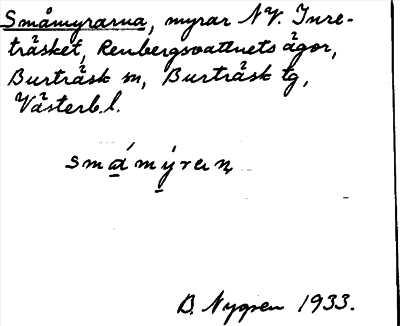 Småmyrarna, myrar N.V. Inre-
träsket, Renbergsvattnets ägor,
Burträsk sn, Burträsk tg,
Västerb. l.
småmýraṇ
D. Nygren 1933.